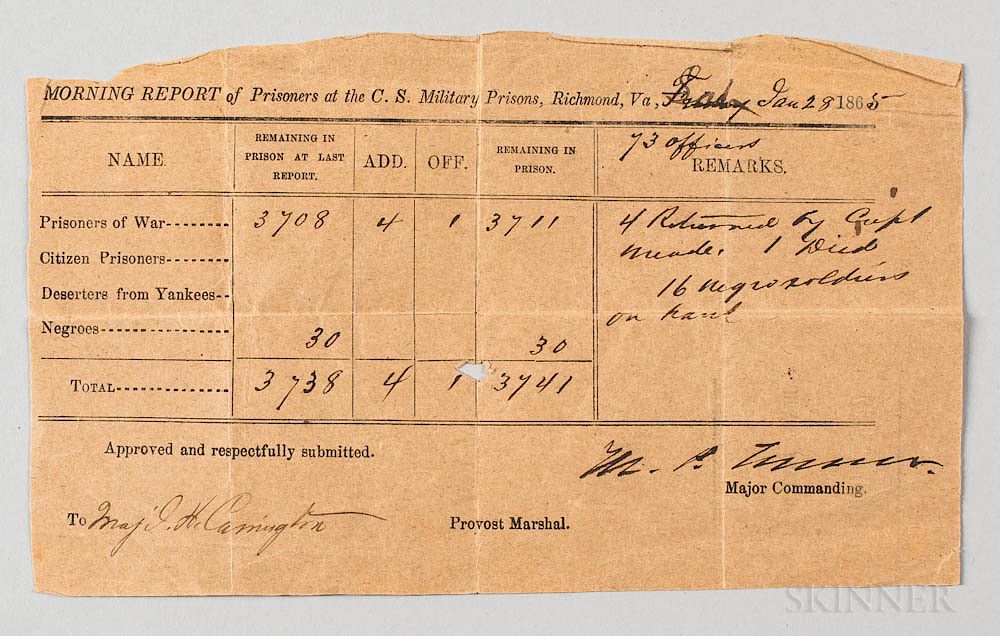 MORNING REPORT of Prisoners at the C. S. Military Prisons, Richmond, Va., Jan 28 1865
73 officers
NAME. REMAINING IN PRISON AT LAST REPORT. ADD. OFF. REMAINING IN PRISON. REMARKS.
Prisoners of War 3708 4 1 3711 4 Returned by Capt
Citizen Prisoners Meade. 1 Died
Deserters from Yankees 16 negro soldiers
Negroes 30 30 on hand
TOTAL 3738 4 1 3741
Approved and respectfully submitted.
Major Commanding.
To Maj I. H. Carrington Provost Marshal.
SKINNER